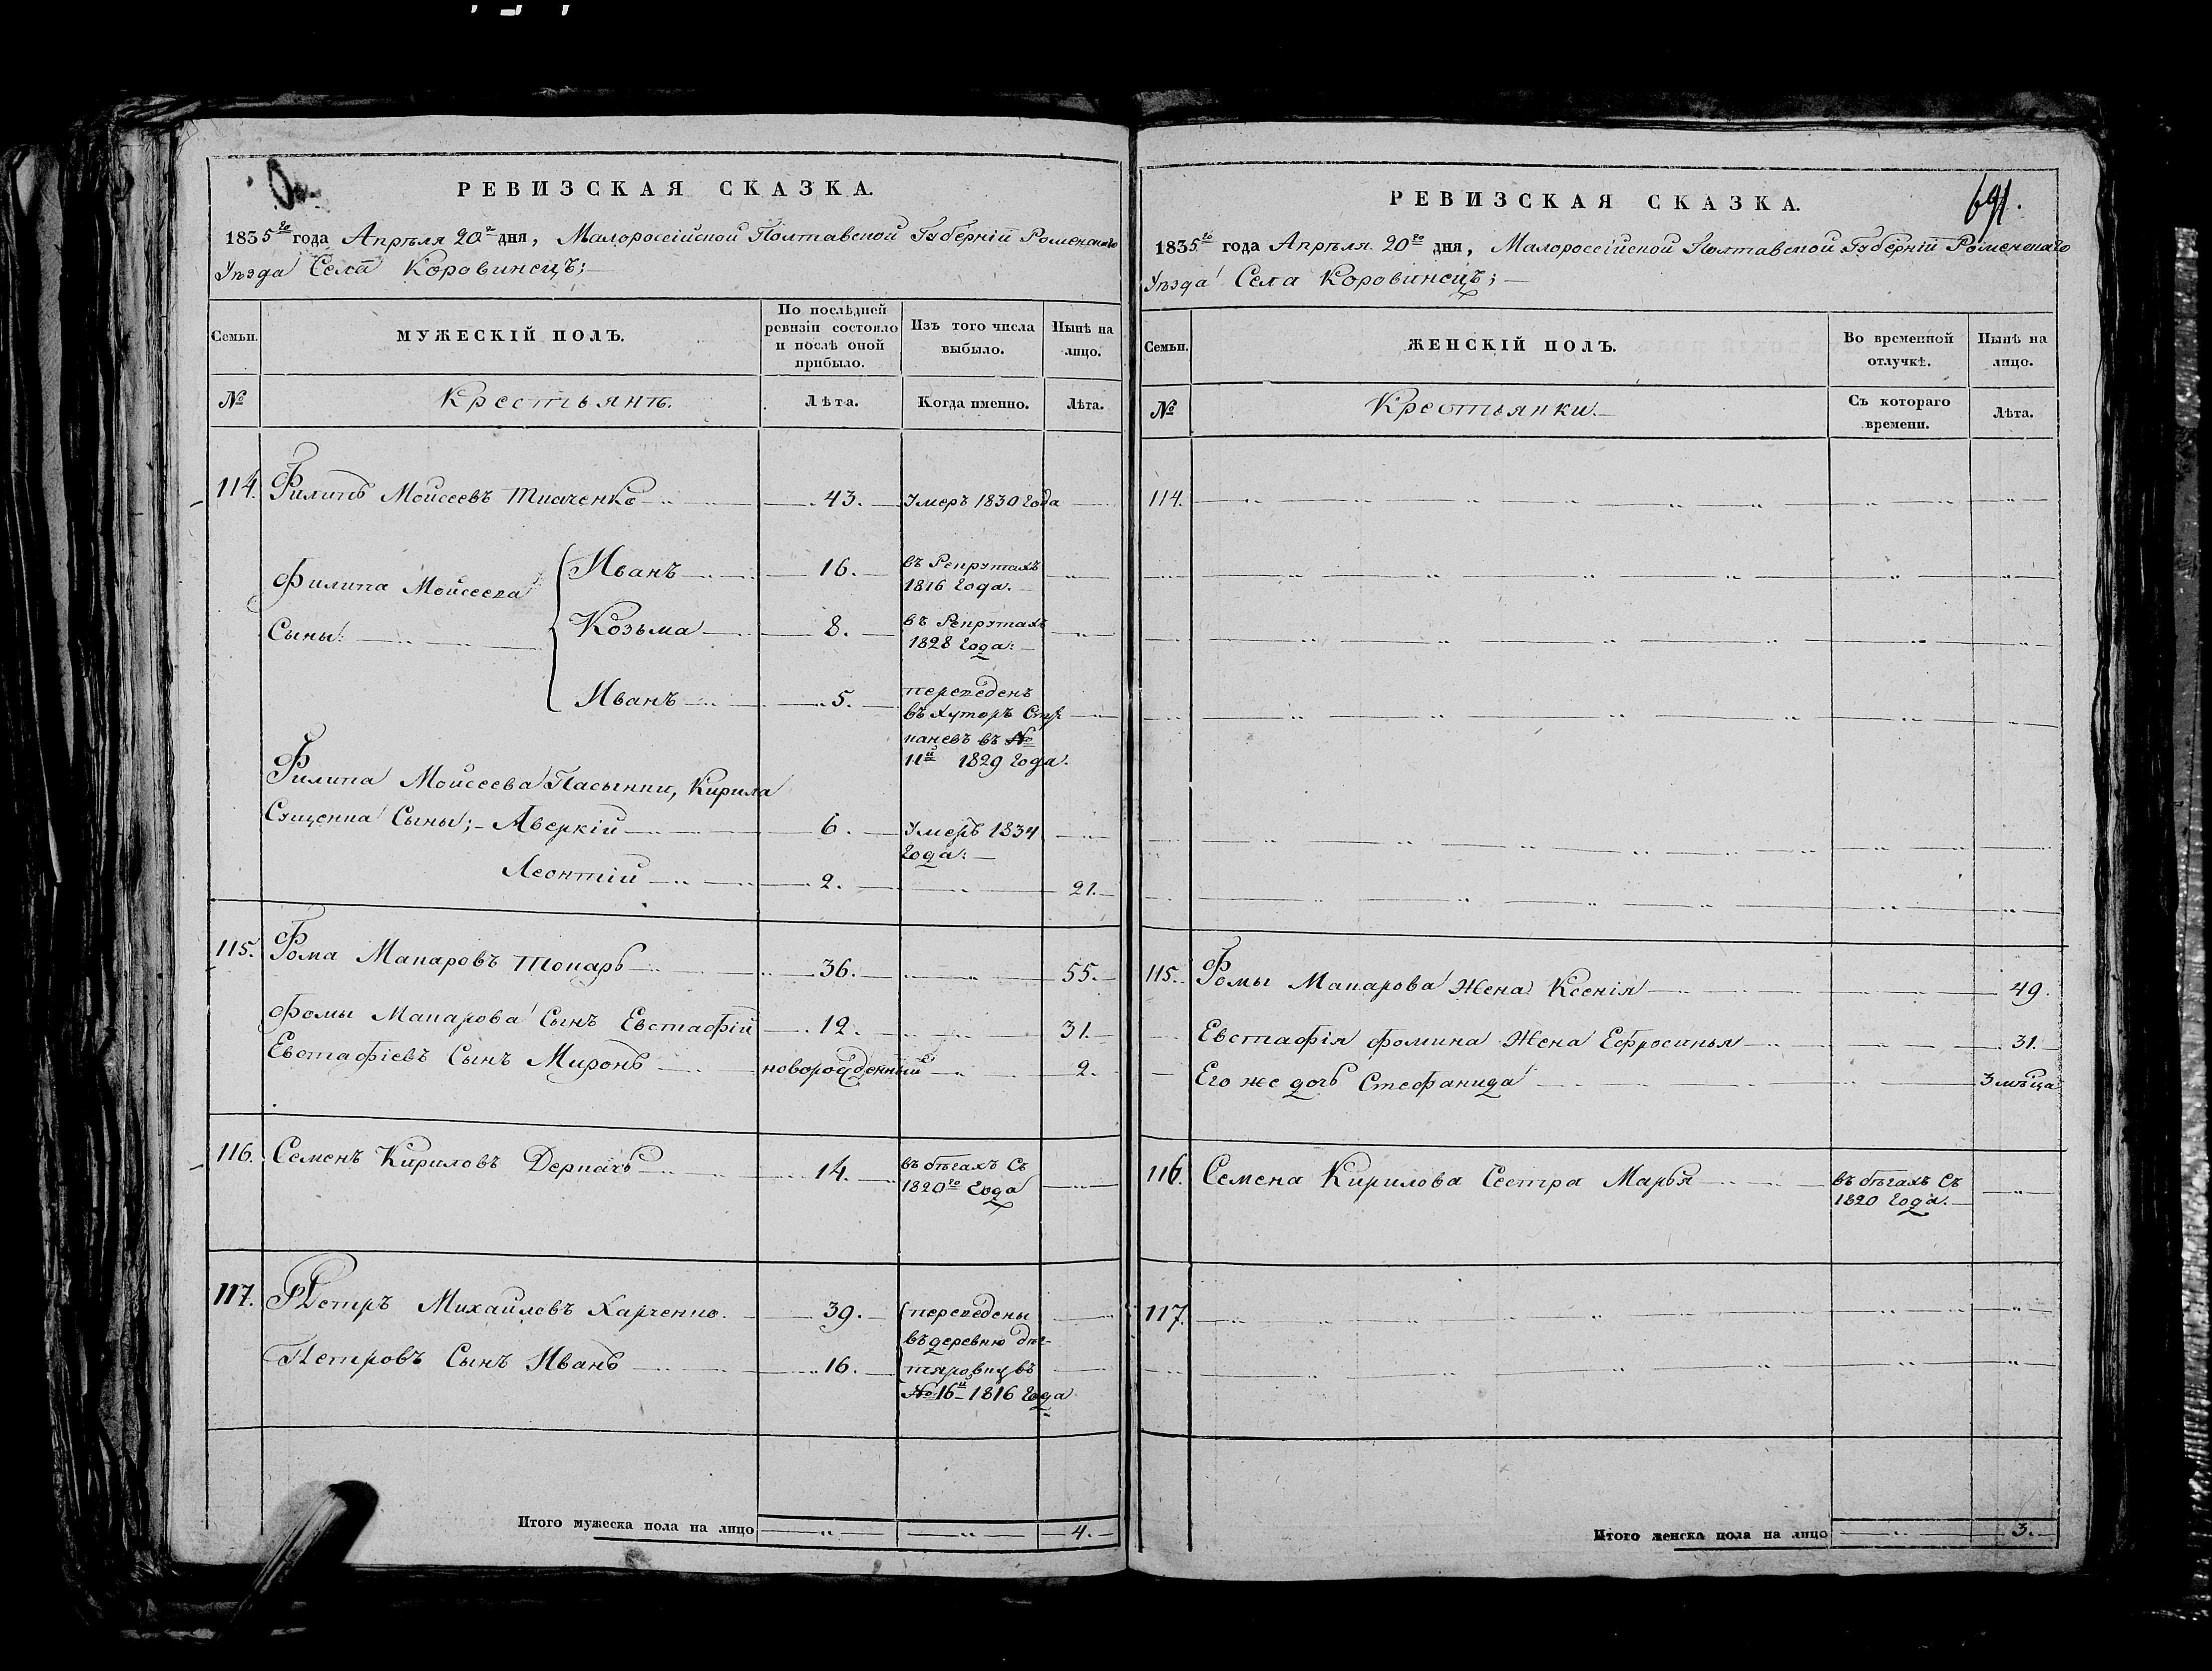 РЕВИЗСКАЯ СКАЗКА.
1835го года Апрѣля 20го дня, Малороссійской Полтавской Губерніи Роменскаго
Уѣзда Села Коровинецъ;
Семьи.
МУЖЕСКІЙ ПОЛЪ.
По послѣдней ревизіи состояло и послѣ оной прибыло.
Изъ того числа выбыло.
Нынѣ на лицо.
№
Крестьянъ.
Лѣта.
Когда именно.
Лѣта.
114. Филипъ Моисеевъ 43. Умеръ 1830 года
Филипа Моисеева Иванъ 16. въ Рекрутахъ
1816 года.
Сыны: Козьма 8. въ Рекрутахъ
1828 года:
Иванъ 5. переведенъ
въ хуторъ Сте
пановъ въ №
11й 1829 года.
Филипа Моисеева Пасынки, Кирила
Сыны; Аверкій 6. Умеръ 1834
года:
Леонтій 2. 21.
115. Фома Макаровъ Токарь 36. 55.
Фомы Макарова Сынъ Евстафій 12. 31.
Евстафіевъ Сынъ Миронъ новорожденный 2.
116. Семенъ Кириловъ Деркачь 14. въ бѣгахъ Съ
1820го года
117. Петръ Михаиловъ Харченко. 39. переведены
въ деревню Дег-
Петровъ Сынъ Иванъ 16. тяровку въ
№ 16й 1816 года
Итого мужеска пола на лицо 4.
691.
РЕВИЗСКАЯ СКАЗКА.
1835го года Апрѣля 20го дня, Малороссійской Полтавской Губерніи Роменскаго
Уѣзда Села Коровинецъ;
Семьи.
ЖЕНСКІЙ ПОЛЪ.
Во временной отлучкѣ.
Нынѣ на лицо.
№
Крестьянки.
Съ котораго времени.
Лѣта.
114.
115. Фомы Макарова Жена Ксенія 49.
Евстафія Фомина Жена Ефросинья 31.
Его же дочь Стефанида 3 мѣсяца
116. Семена Кирилова Сестра Марья въ бѣгахъ Съ
1820 года.
117.
Итого женска пола на лицо 3.